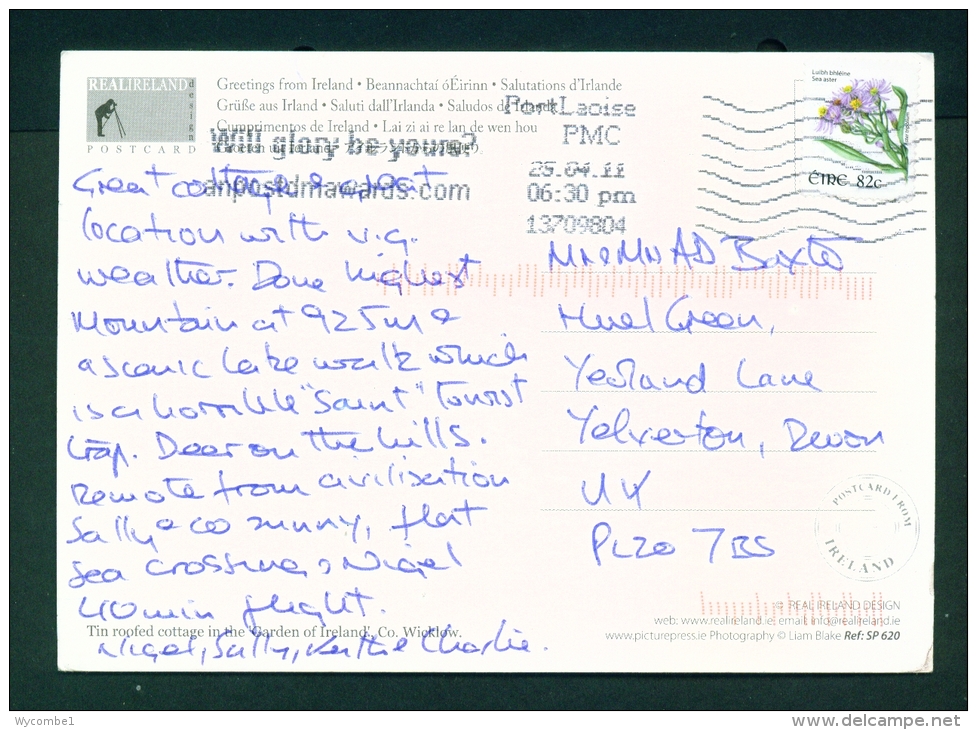 REALIRELAND
design
POSTCARD
Greetings from Ireland • Beannachtaí óÉirinn • Salutations d'Irlande
Grüße aus Irland • Saluti dall'Irlanda • Saludos de Irlanda
Cumprimentos de Ireland • Lai zi ai re lan de wen hou
Will glory be yours?
anpostdmawards.com
PortLaoise
PMC
25.04.11
06:30 pm
13709804
Luibh bhléine
Sea aster
ÉIRE 82c
Great cottage & great
location with v.g.
weather. Done highest
Mountain at 925m &
a scenic lake walk which
is a horrible "Saint" tourist
trap. Deer on the hills.
Remote from civilisation
Sally & co sunny, flat
sea crossing, Nigel
40 min flight.
Nigel, Sally, & Charlie.
AD Baxter
Green,
Lane
Yelverton, Devon
UK
PL20 7BS
POSTCARD FROM
IRELAND
Tin roofed cottage in the 'Garden of Ireland', Co. Wicklow.
© REAL IRELAND DESIGN
web: www.realireland.ie email info@realireland.ie
www.picturepress.ie Photography © Liam Blake Ref: SP 620
Wycombe1
delcampe.net